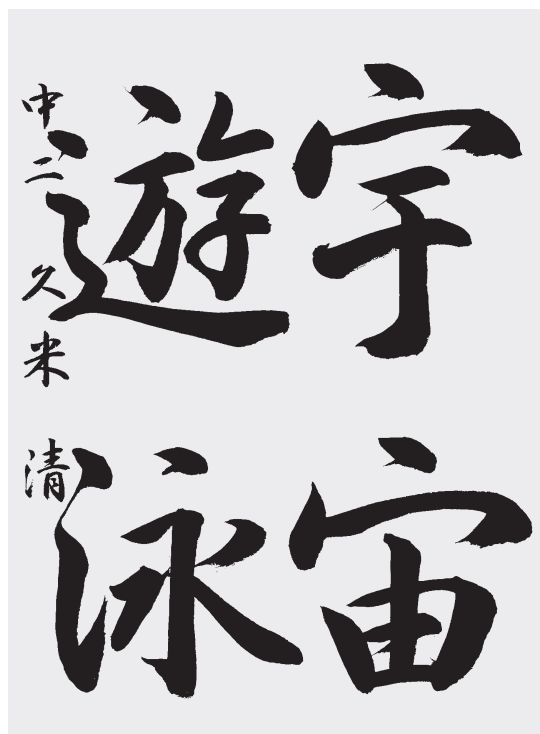 宇宙
遊泳
中二 久米 清